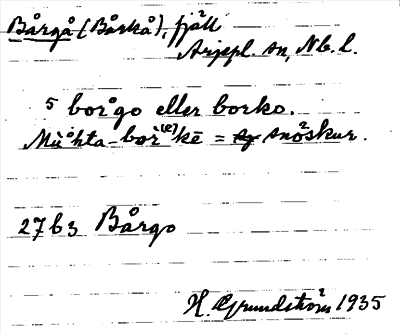 Bårgå (Bårkå), fjäll
Arjepl. sn, Nb. l.
5 borgo eller borko.
= snöskur.
27 b 3 Bårgo
H. Grundström 1935